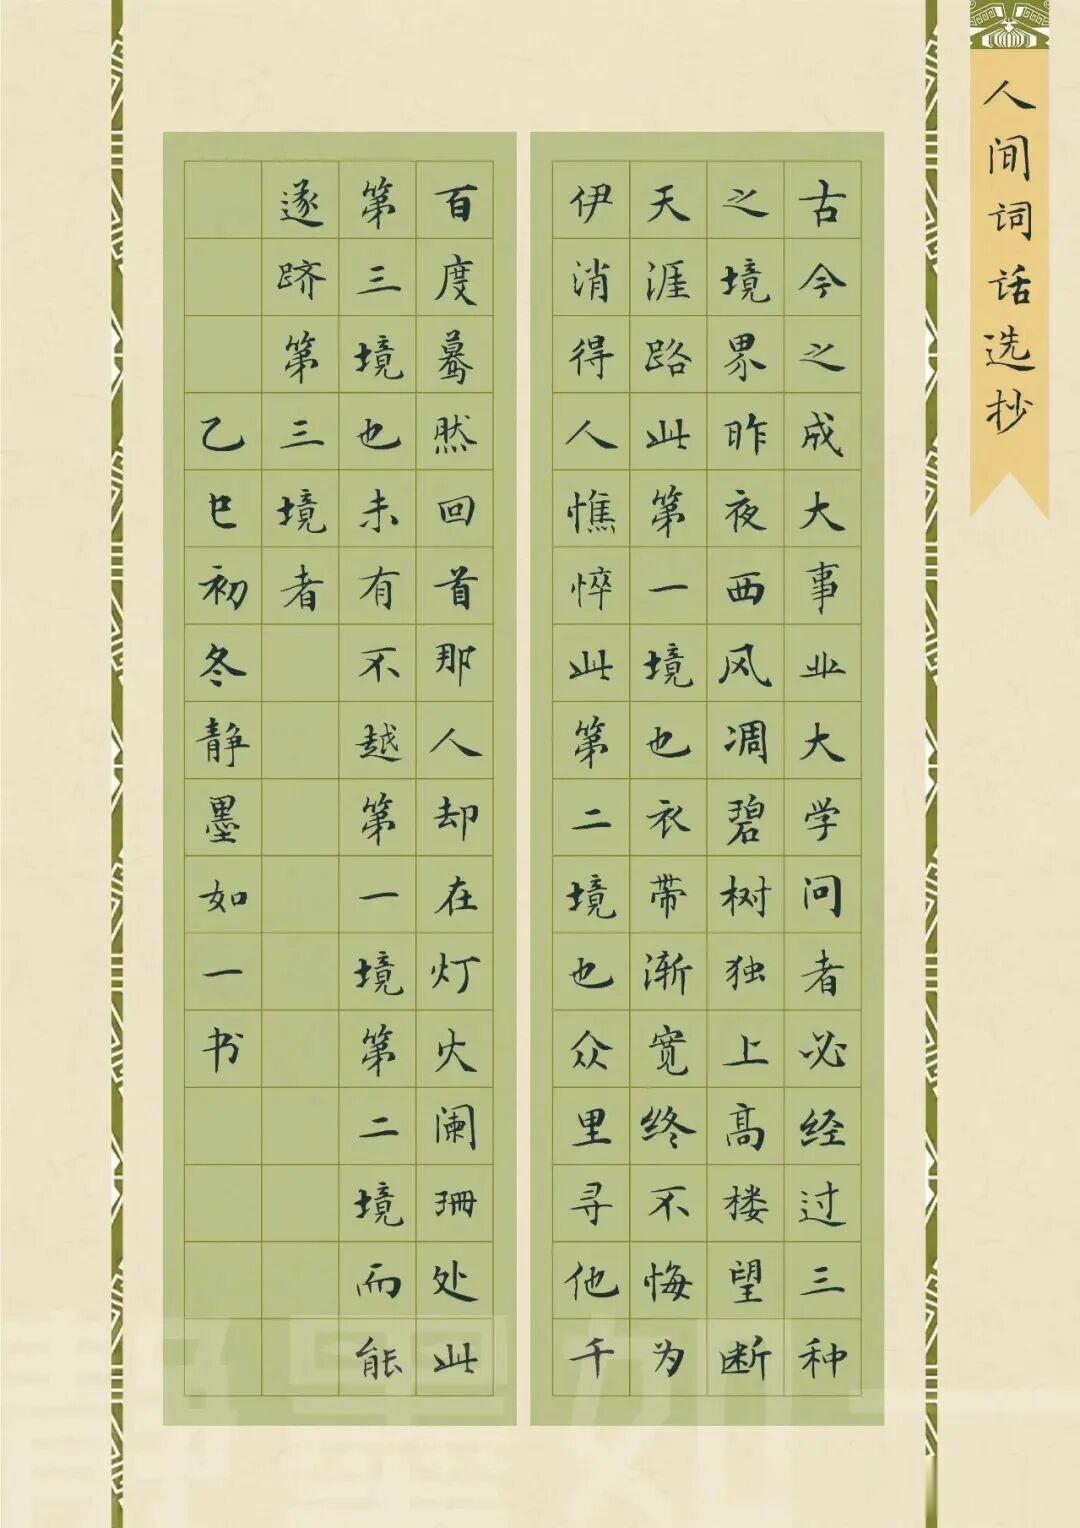 人间词话选抄
古今之成大事业大学问者必经过三种
之境界昨夜西风凋碧树独上高楼望断
天涯路此第一境也衣带渐宽终不悔为
伊消得人憔悴此第二境也众里寻他千
百度蓦然回首那人却在灯火阑珊处此
第三境也未有不越第一境第二境而能
遂跻第三境者
乙巳初冬静墨如一书
静墨如一